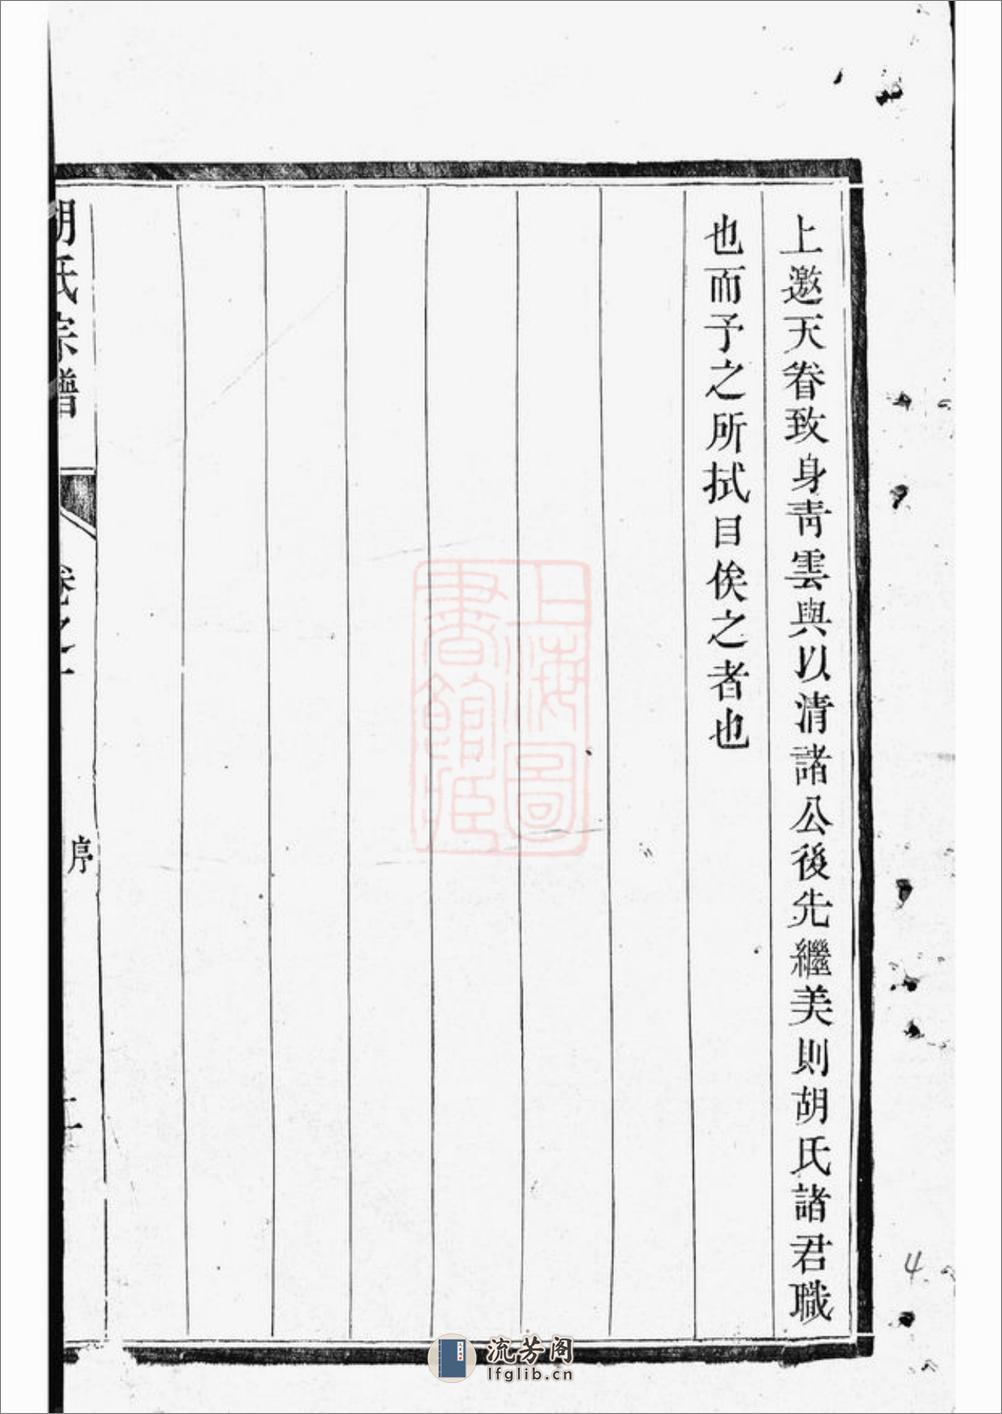 上邀天眷致身靑雲與以清諸公後先繼美則胡氏諸君職
也而予之所拭目俟之者也
胡氏宗譜
卷之一
序
上海圖
書館藏
4
流芳阁
lfglib.cn